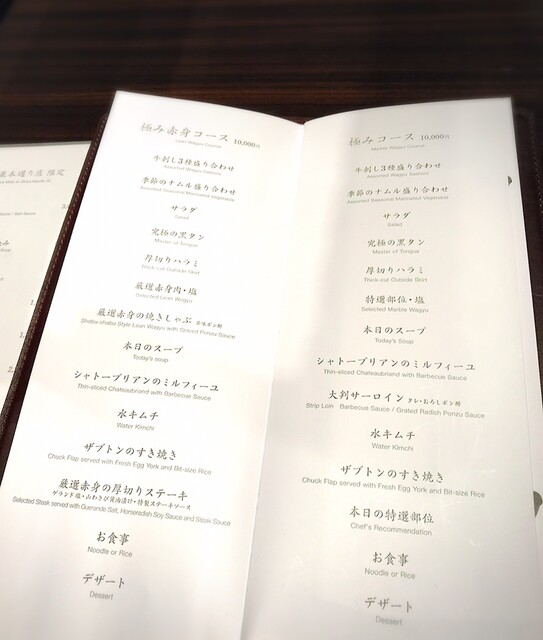 極み赤身コース 10,000円
Lean Wagyu Course
牛刺し3種盛り合わせ
Assorted Wagyu Sashimi
季節のナムル盛り合わせ
Assorted Seasonal Marinated Vegetable
サラダ
Salad
究極の黒タン
Master of Tongue
厚切りハラミ
Thick-cut Outside Skirt
厳選赤身肉・塩
Selected Lean Wagyu
厳選赤身の焼きしゃぶ
Shabu-shabu Style Lean Wagyu with Spiced Ponzu Sauce
本日のスープ
Today's soup
シャトーブリアンのミルフィーユ
Thin-sliced Chateaubriand with Barbecue Sauce
水キムチ
Water Kimchi
ザブトンのすき焼き
Chuck Flap served with Fresh Egg York and Bit-size Rice
厳選赤身の厚切りステーキ
ゲランド塩・山わさび醤油漬け・特製ステーキソース
Selected Steak served with Guerande Salt, Horseradish Soy Sauce and Steak Sauce
お食事
Noodle or Rice
デザート
Dessert
極みコース 10,000円
Marble Wagyu Course
牛刺し3種盛り合わせ
Assorted Wagyu Sashimi
季節のナムル盛り合わせ
Assorted Seasonal Marinated Vegetable
サラダ
Salad
究極の黒タン
Master of Tongue
厚切りハラミ
Thick-cut Outside Skirt
特選部位・塩
Selected Marble Wagyu
本日のスープ
Today's Soup
シャトーブリアンのミルフィーユ
Thin-sliced Chateaubriand with Barbecue Sauce
大判サーロイン タレ・おろしポン酢
Strip Loin Barbecue Sauce / Grated Radish Ponzu Sauce
水キムチ
Water Kimchi
ザブトンのすき焼き
Chuck Flap served with Fresh Egg York and Bit-size Rice
本日の特選部位
Chef's Recommendation
お食事
Noodle or Rice
デザート
Dessert